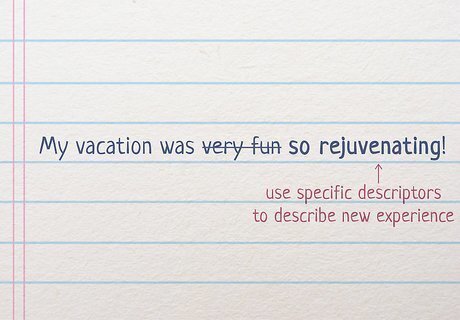 My vacation was very fun so rejuvenating!
use specific descriptors
to describe new experience